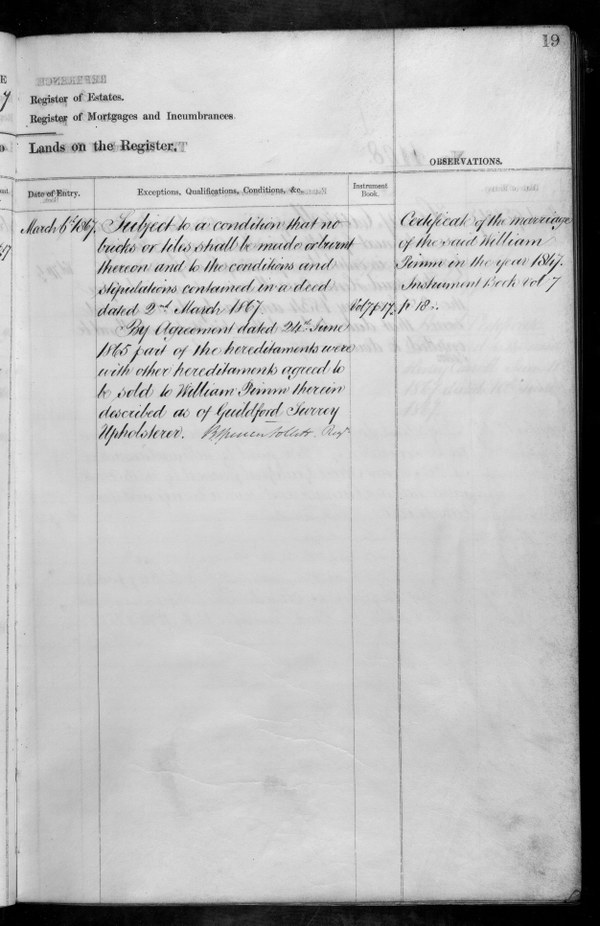 19
Register of Estates.
Register of Mortgages and Incumbrances.
Lands on the Register.
OBSERVATIONS.
Date of Entry.
Exceptions, Qualifications, Conditions, &c.
Instrument
Book.
March 6th 1867.
Subject to a condition that no
bricks or tiles shall be made or burnt
thereon and to the conditions and
stipulations contained in a deed
dated 2nd March 1867.
Vol 7 p 17.
By Agreement dated 24th June
1865 part of the hereditaments were
with other hereditaments agreed to
be sold to William Timm therein
described as of Guildford Surrey
Upholsterer.
Certificate of the marriage
of the said William
Timm in the year 1847.
Instrument Book Vol 7
p 18.